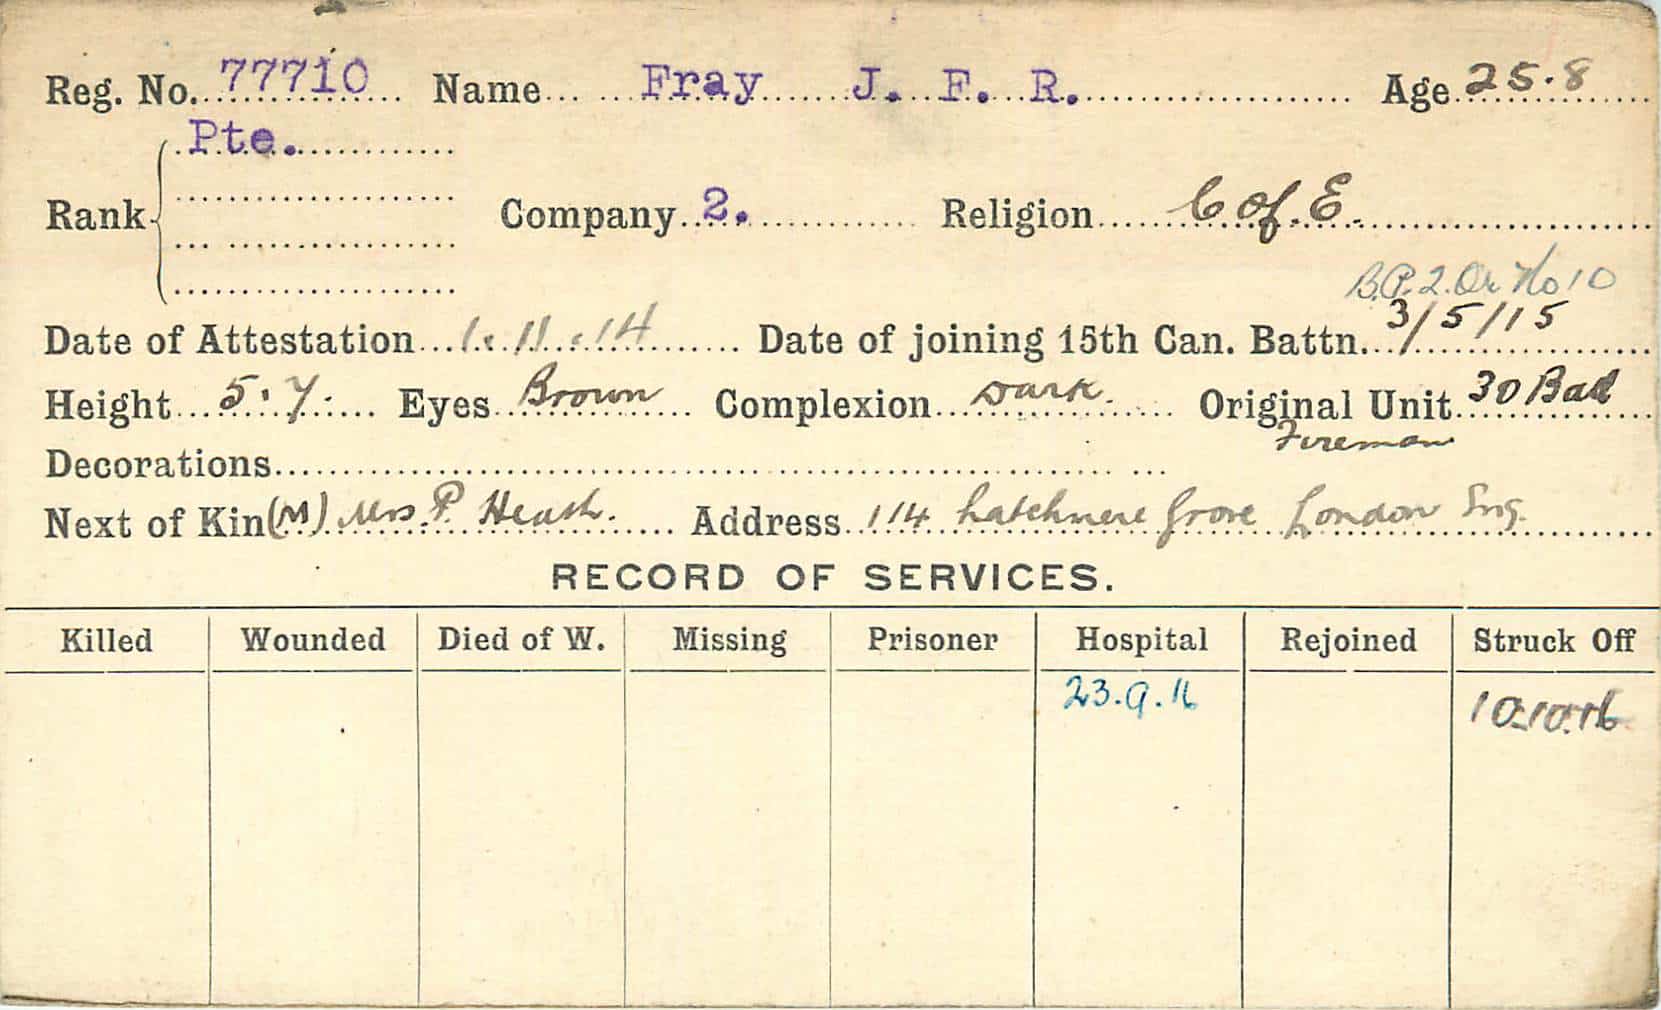 Reg. No. 77710 Name Fray J. F. R. Age 25.8
Pte.
Rank Company 2. Religion C of. E.
B.P. 2. Or No 10
Date of Attestation 1.11.14 Date of joining 15th Can. Battn. 3/5/15
Height 5.7. Eyes Brown Complexion Dark. Original Unit 30 Bat
Fireman
Decorations
Next of Kin (M) Mrs. P. Address 114 Latchmere Grove London Eng.
RECORD OF SERVICES.
Killed Wounded Died of W. Missing Prisoner Hospital Rejoined Struck Off
23.9.16 10.10.16